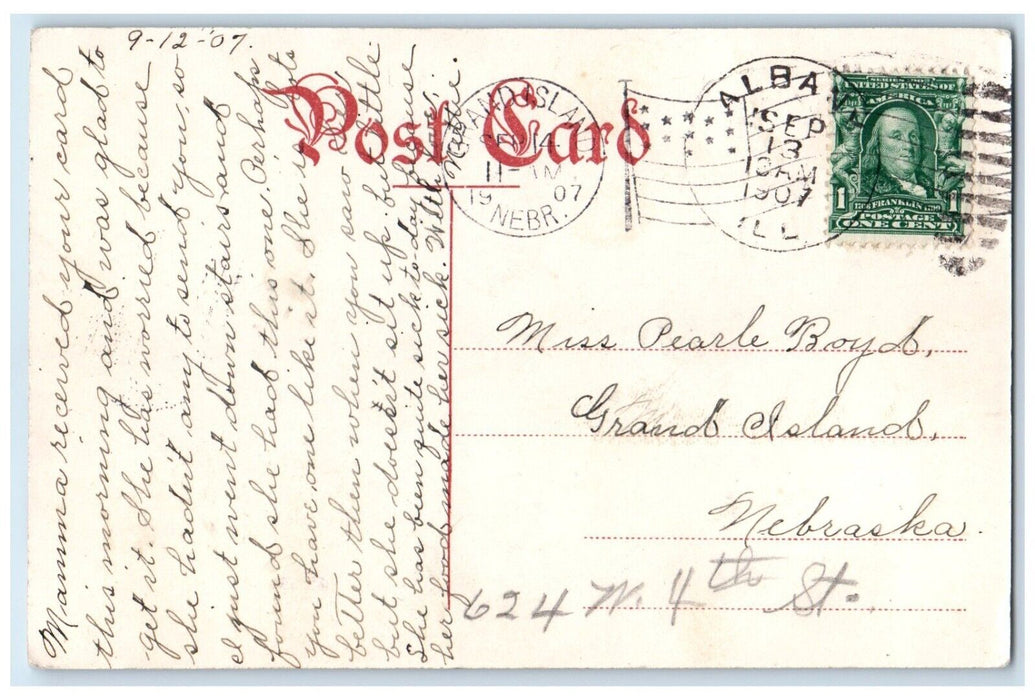 9-12-07.
Mamma received your card
this morning and was glad to
get it. She has worried because
she hadn't any to send you, so
I just went down stairs and
found she had this one. Perhaps
you have one like it. She is lots
better then when you saw her
but she doesn't set up but little
She has been quite sick to-day
her food made her sick. With love
Post Card
GRAND ISLAND
SEP 14
11 AM
1907
NEBR.
ALBANY
SEP
13
10 AM
1907
ILL.
SERIES 1902
UNITED STATES OF
AMERICA
1 1
1706 FRANKLIN 1790
POSTAGE
ONE CENT
Miss Pearle Boyd,
Grand Island,
Nebraska.
624 W. 4th St.